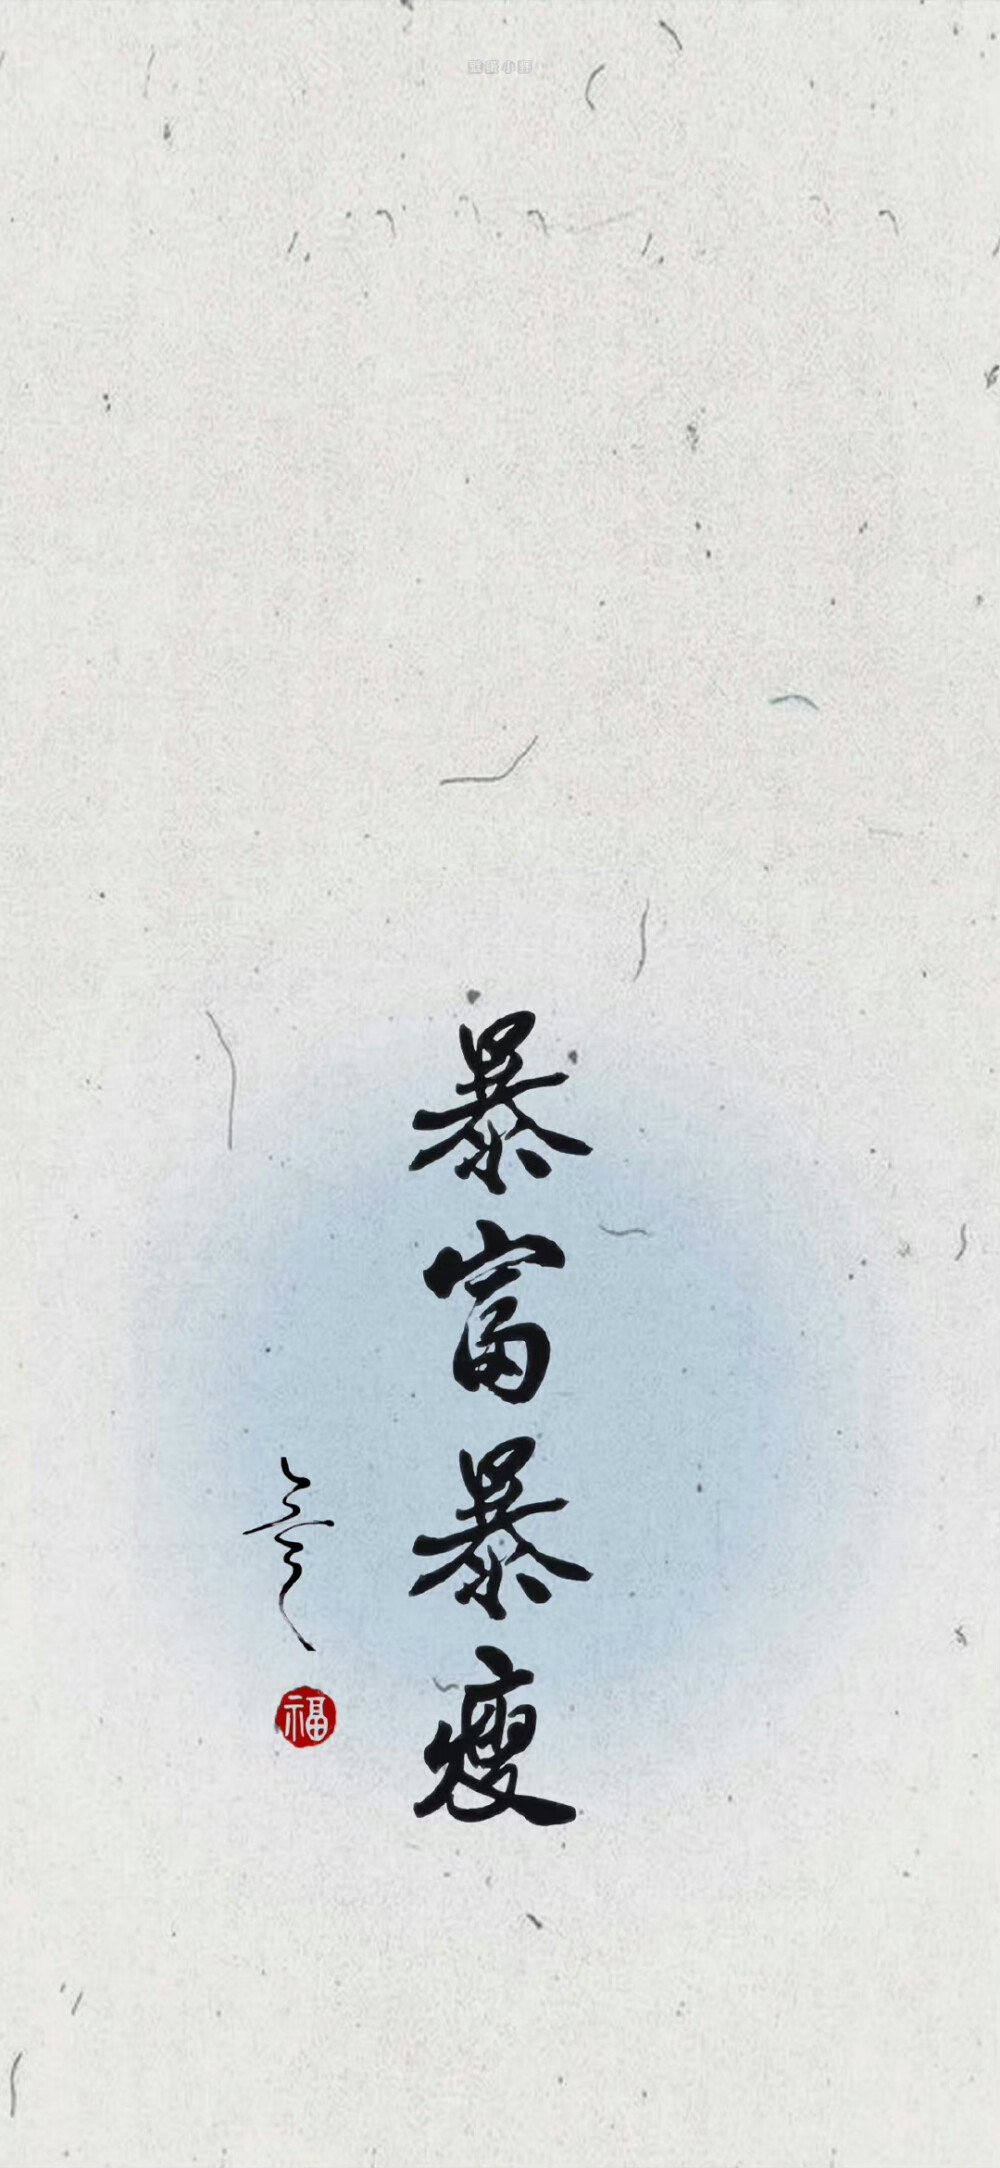 暴富暴瘦
福